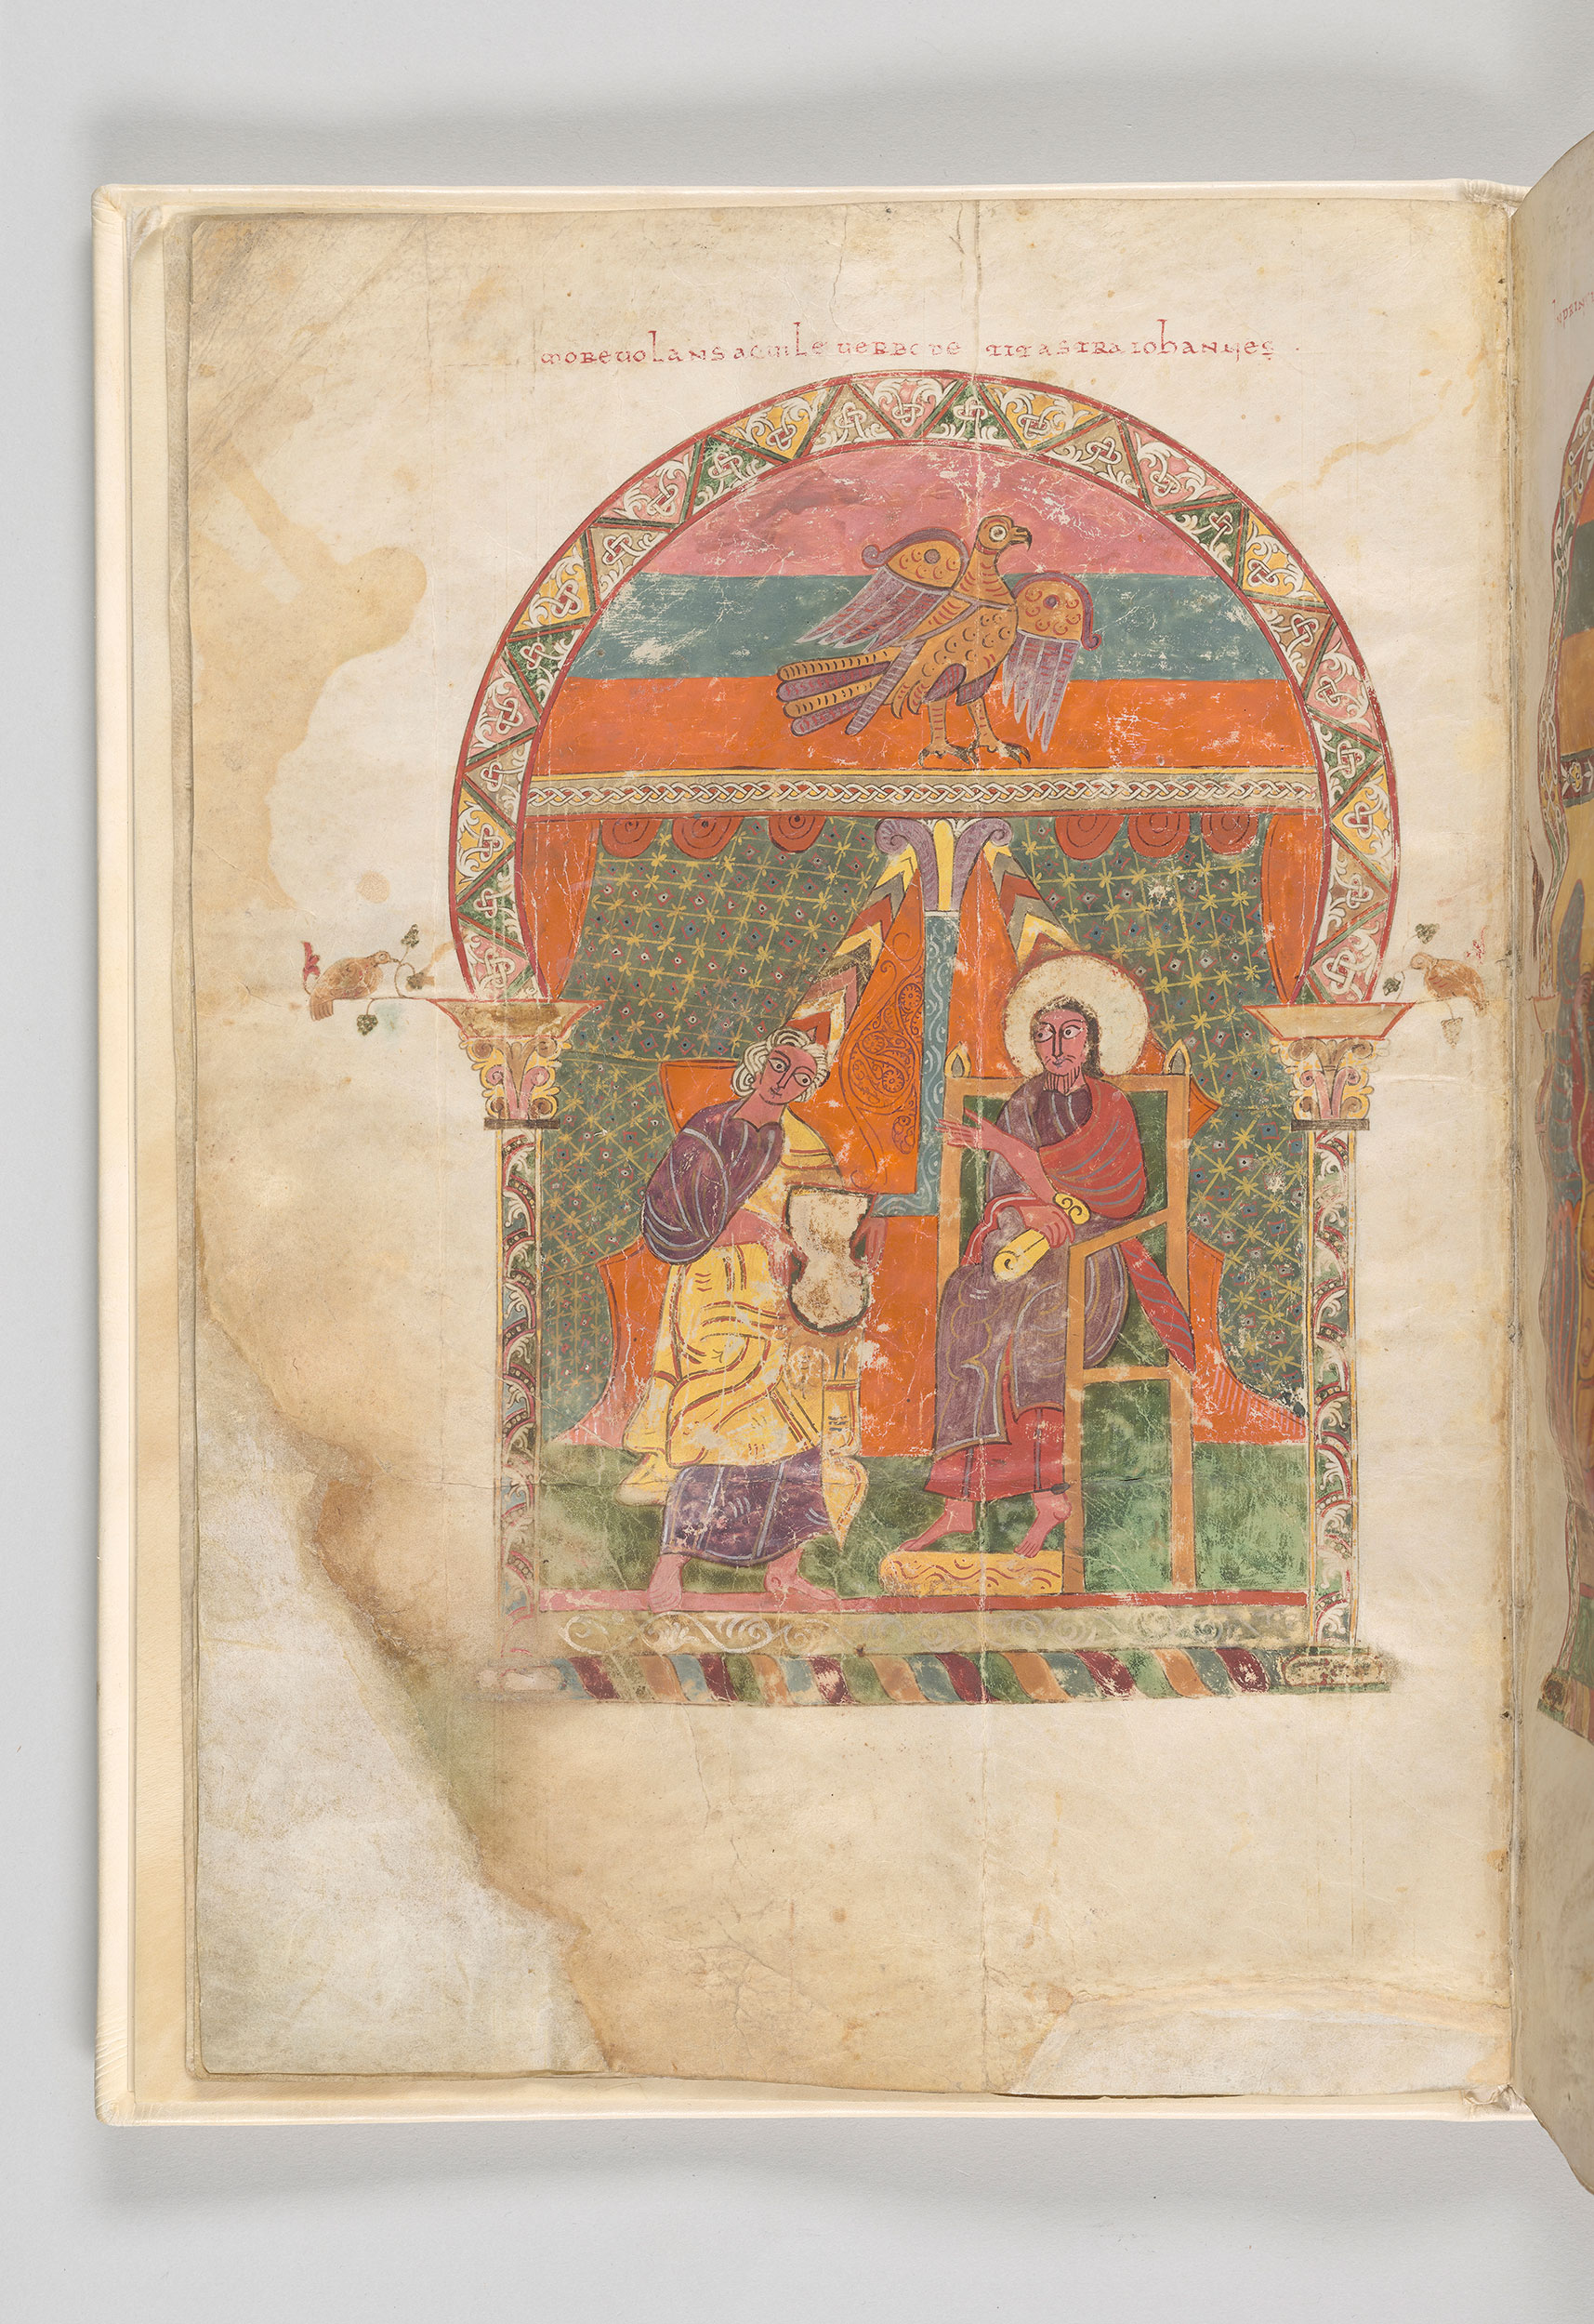 more uolans aquile uerbo petit astra iohannes
In prin